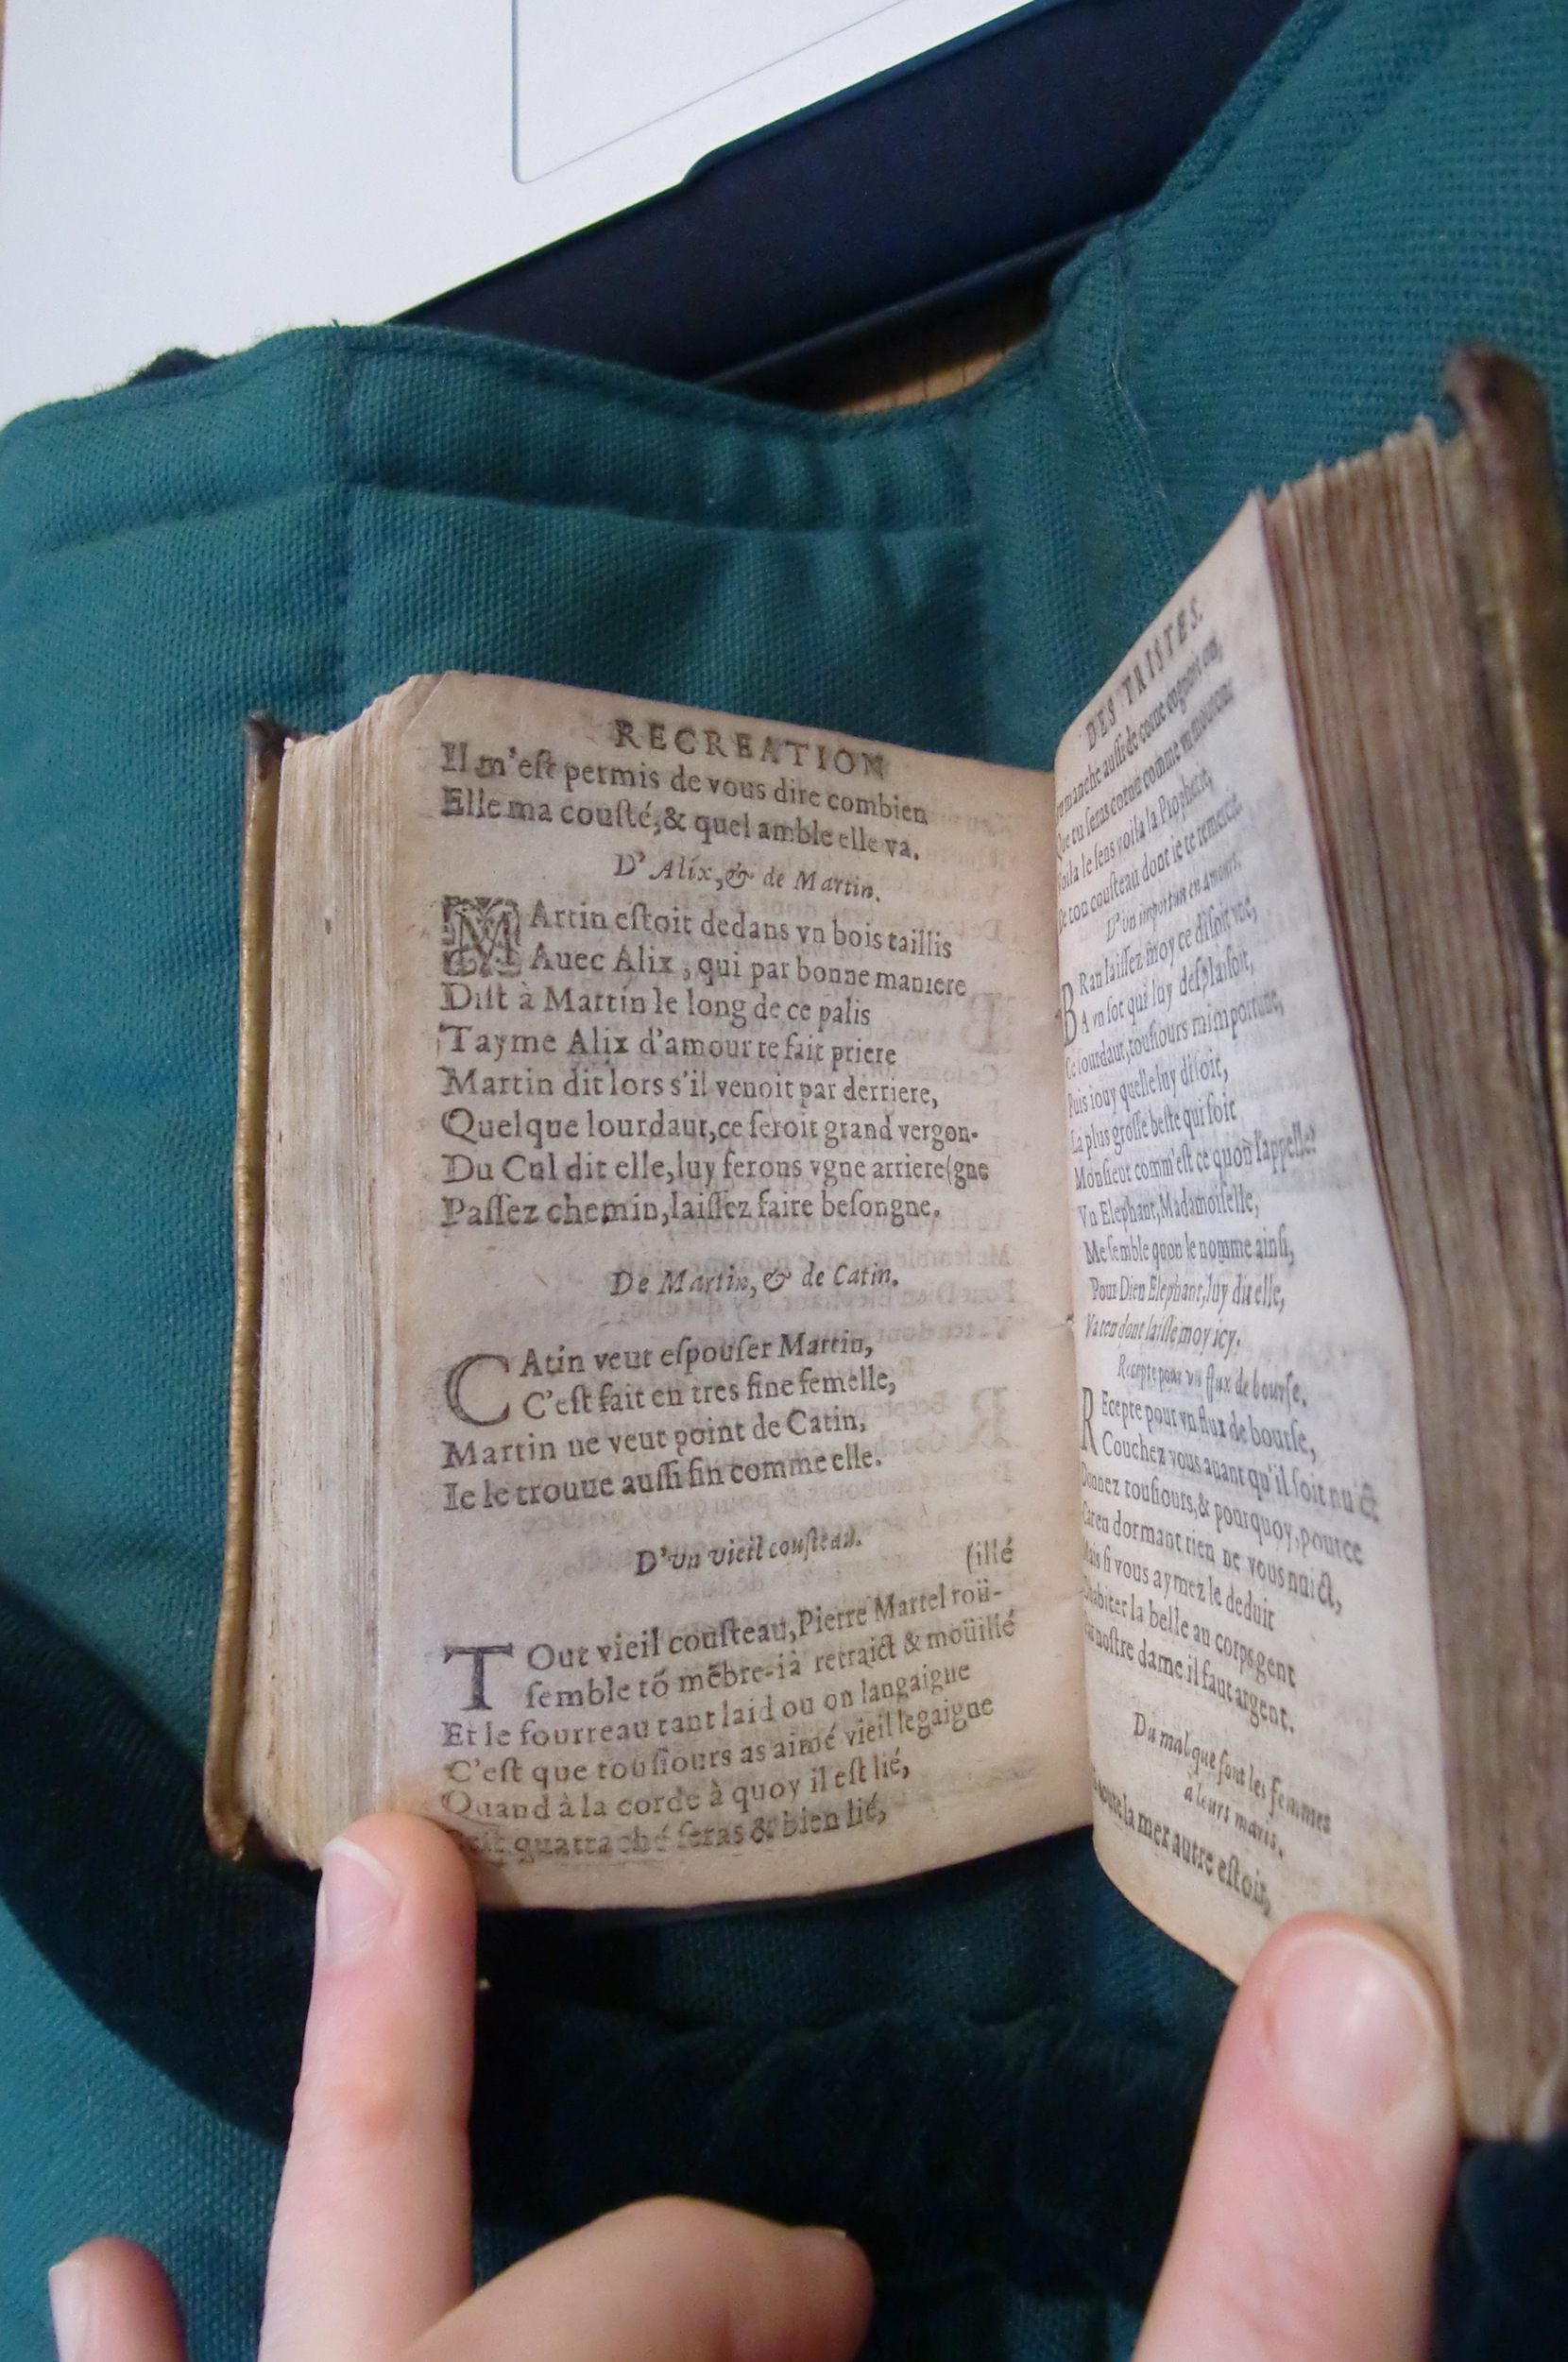 RECREATION
Il m'eſt permis de vous dire combien
Elle ma couſté,& quel amble elle va.
D' Alix,& de Martin.
MArtin eſtoit dedans vn bois taillis
Auec Alix, qui par bonne maniere
Diſt à Martin le long de ce palis
T'ayme Alix d'amour te fait priere
Martin dit lors s'il venoit par derriere,
Quelque lourdaut,ce ſeroit grand vergon-
Du Cul dit elle,luy ferons vgne arriere(gne
Paſſez chemin,laiſſez faire beſongne.
De Martin,& de Catin.
CAtin veut eſpouſer Martin,
C'eſt fait en tres fine femelle,
Martin ne veut point de Catin,
Ie le trouue auſſi fin comme elle.
D'vn vieil couſteau.
(illé
TOut vieil couſteau,Pierre Martel roü-
ſemble tõ mẽbre-ià retraict & moüillé
Et le fourreau tant laid ou on langaigne
C'eſt que touſiours as aimé vieil legaigne
Quand à la corde à quoy il eſt lié,
quattaché ſeras & bien lié,
DES TRISTES.
manche auſſi de corne
Que tu ſeras cornu comme
Voila le ſens voila la Prophetie,
De ton couſteau dont ie te remercie
D'vn importun en amours.
BRan laiſſez moy ce diſoit vne,
A vn ſot qui luy deſplaiſoit,
Ce lourdaut,touſiours m'importune,
Puis iouy quelle luy diſoit,
La plus groſſe beſte qui ſoit
Monſieur comm'eſt ce quon l'appelle:
Vn Elephant,Madamoiſelle,
Me ſemble quon le nomme ainſi,
Pour Dieu Elephant,luy dit elle,
Va ten dont laiſſe moy icy.
Recepte pour vn flux de bourſe.
REcepte pour vn flux de bourſe,
Couchez vous auant qu'il ſoit nuict
Donnez touſiours,& pourquoy,pource
Car en dormant rien ne vous nuict,
Mais ſi vous aymez le deduit
habiter la belle au corps gent
noſtre dame il faut argent.
Du mal que font les femmes
à leurs maris.
la mer autre eſtoit,